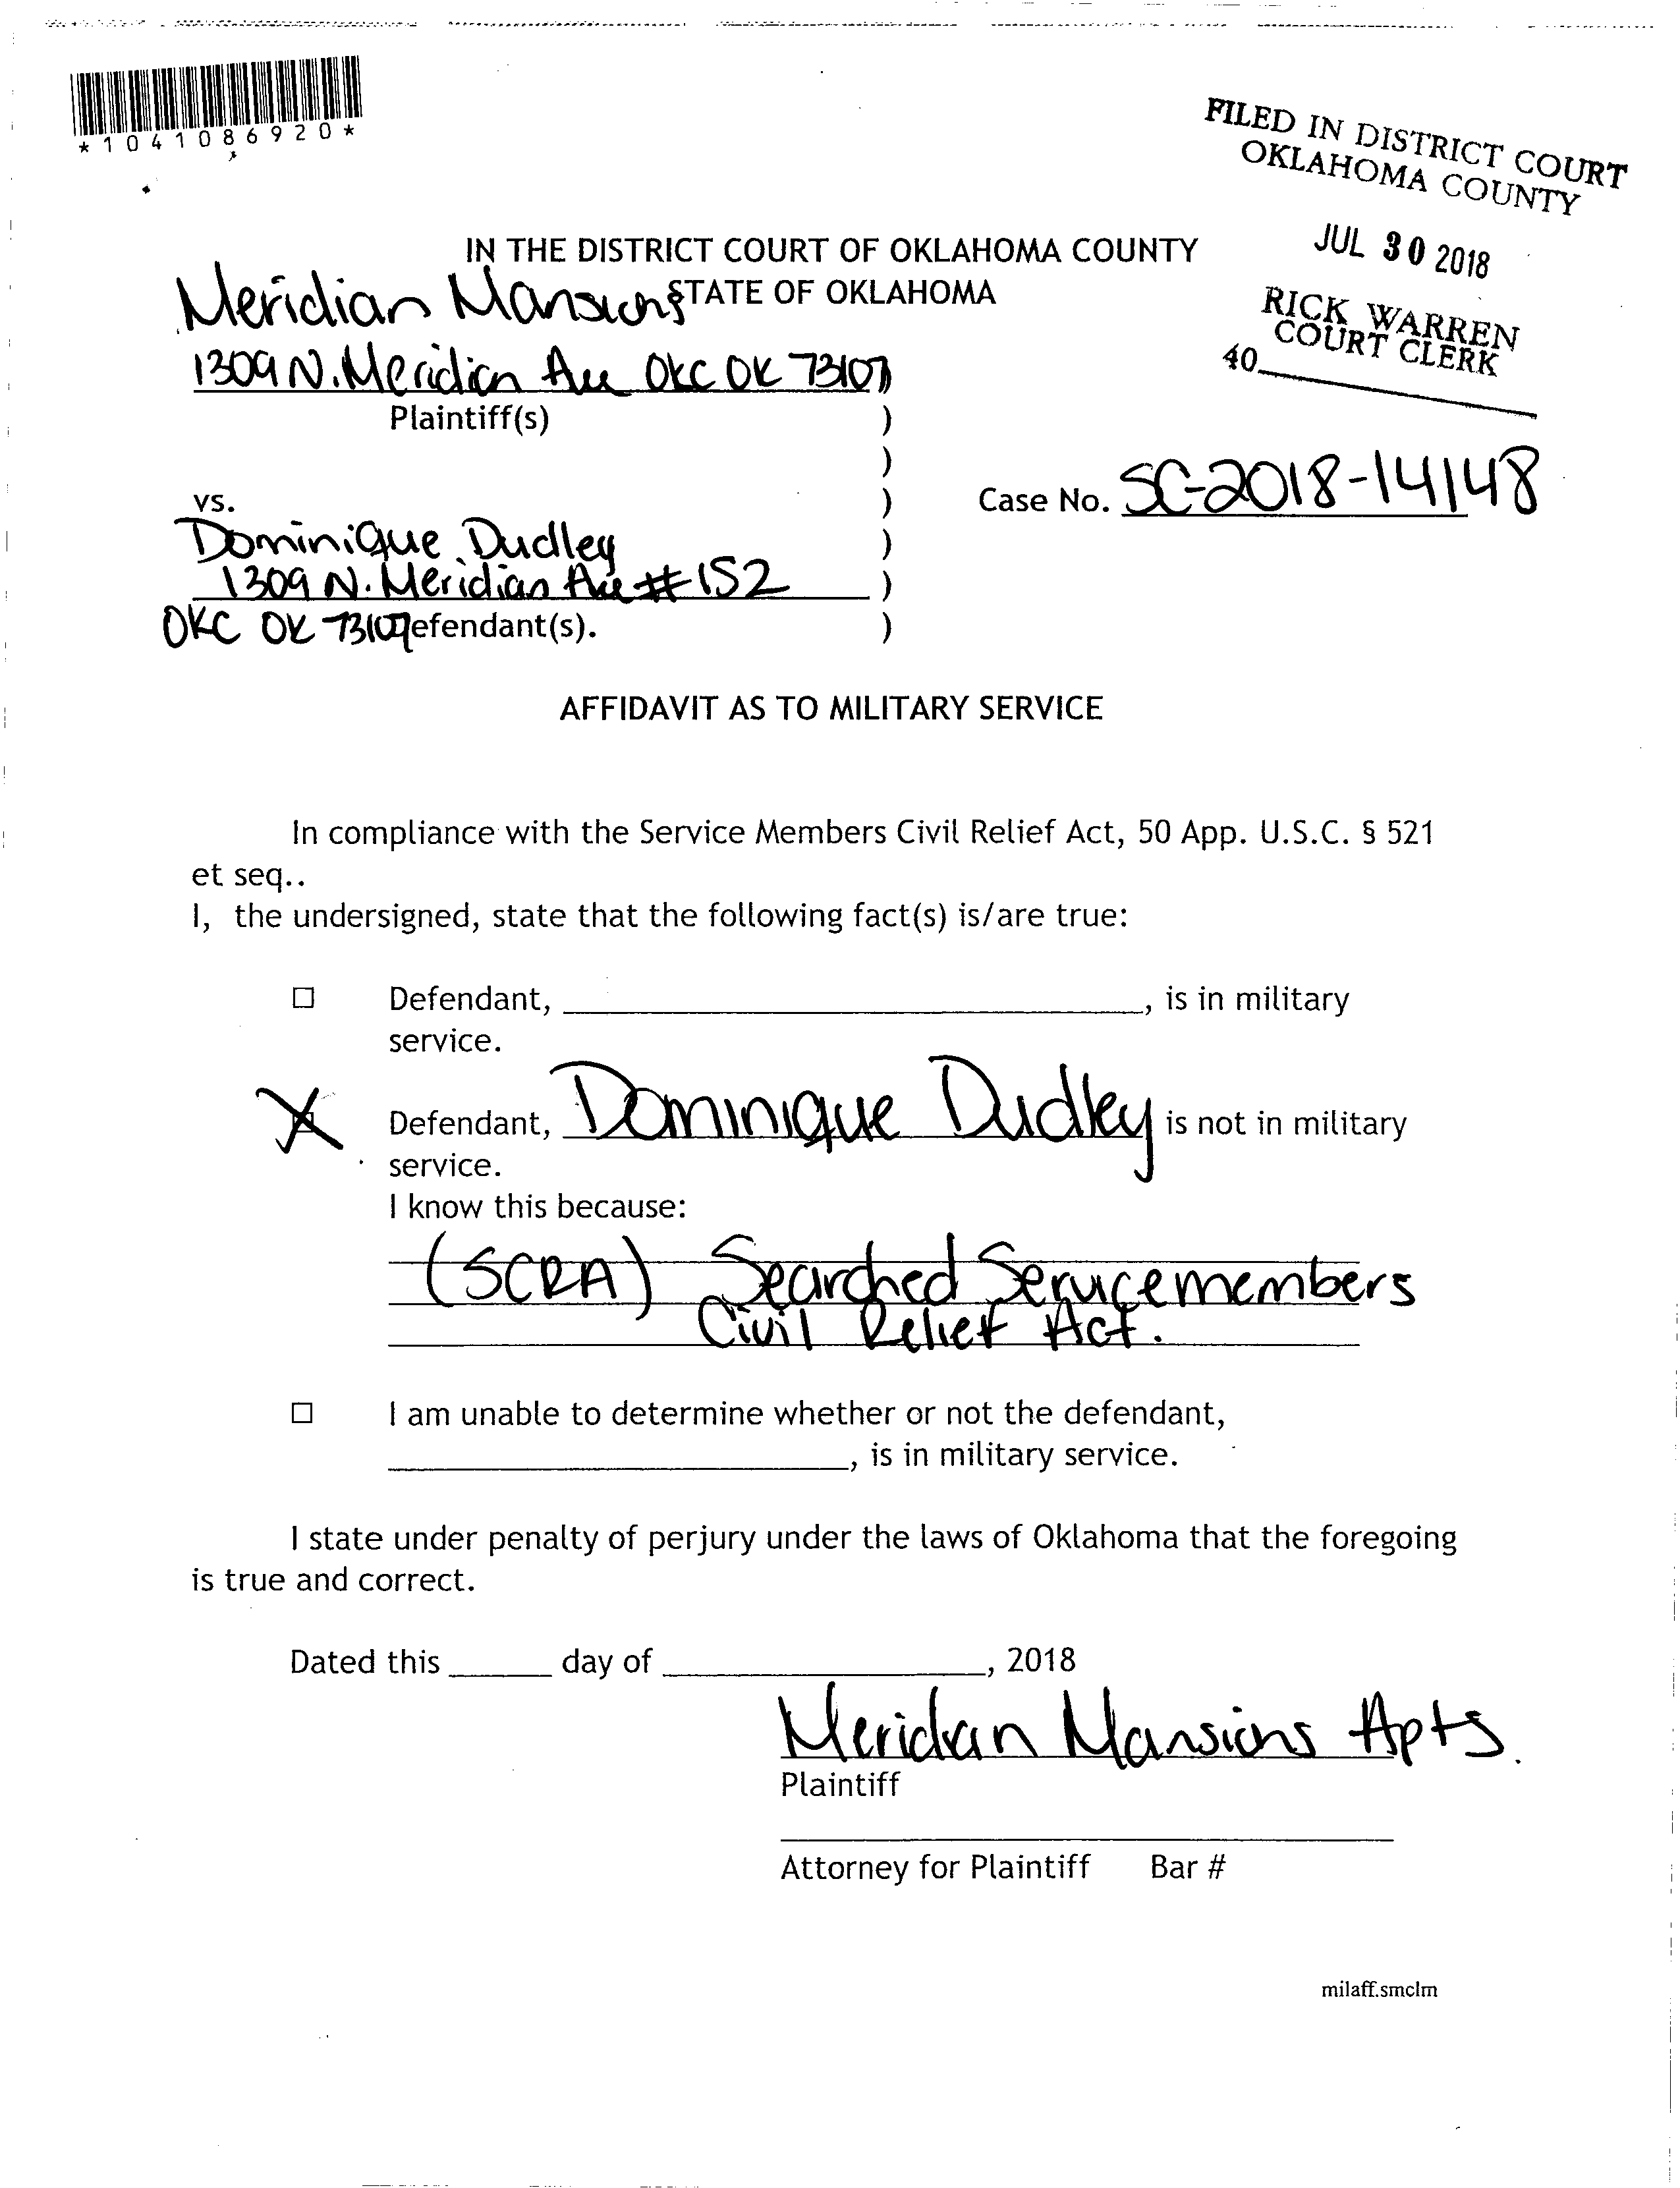 *1041086920*
FILED IN DISTRICT COURT
OKLAHOMA COUNTY
JUL 30 2018
RICK WARREN
COURT CLERK
40
IN THE DISTRICT COURT OF OKLAHOMA COUNTY
STATE OF OKLAHOMA
Meridian Mansions
1309 N. Meridian Ave OKC OK 73107 )
Plaintiff(s) )
)
vs. )
Case No. SC-2018-14148
Dominique Dudley )
1309 N. Meridian Ave #152 )
OKC OK 73107 Defendant(s). )
AFFIDAVIT AS TO MILITARY SERVICE
In compliance with the Service Members Civil Relief Act, 50 App. U.S.C. § 521
et seq..
I, the undersigned, state that the following fact(s) is/are true:
☐ Defendant, , is in military
service.
X Defendant, Dominique Dudley is not in military
service.
I know this because:
(SCRA) Searched Servicemembers
Civil Relief Act.
☐ I am unable to determine whether or not the defendant,
, is in military service.
I state under penalty of perjury under the laws of Oklahoma that the foregoing
is true and correct.
Dated this day of , 2018
Meridian Mansions Apts.
Plaintiff
Attorney for Plaintiff Bar #
milaff.smclm